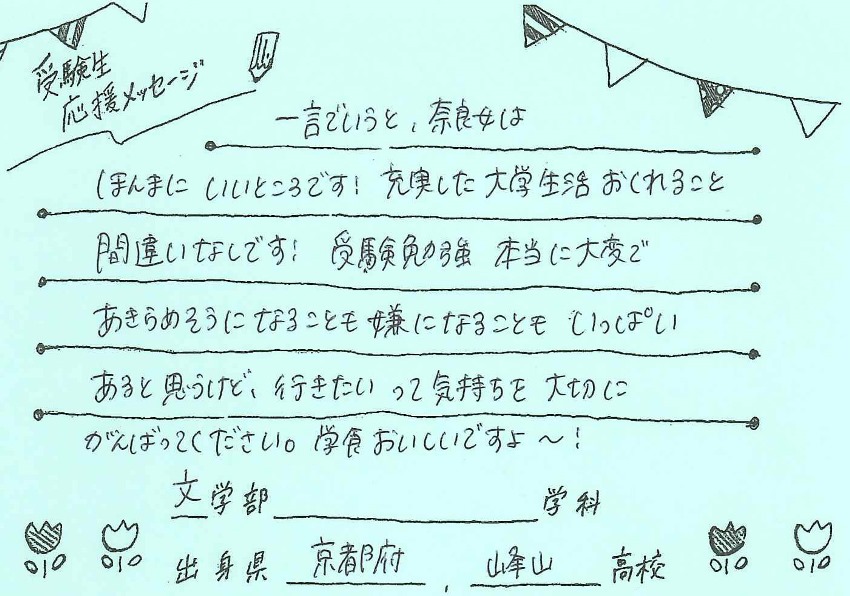 受験生
応援メッセージ
一言でいうと、奈良女は
ほんまに いいところです! 充実した 大学生活 おくれること
間違いなしです! 受験勉強 本当に大変で
あきらめそうに なることも 嫌になることも いっぱい
あると思うけど、行きたい って気持ちを 大切に
がんばってください。学食おいしいですよ〜!
文学部 学科
出身県 京都府 , 峰山 高校